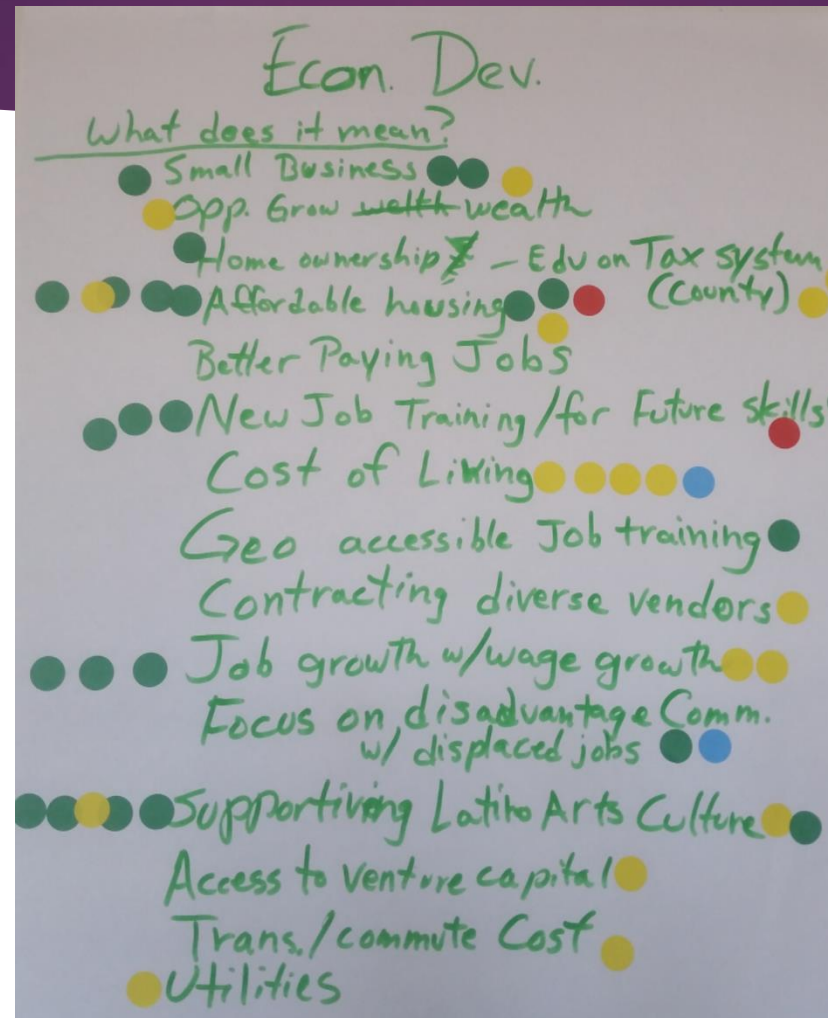 Econ. Dev.
What does it mean?
Small Business
Opp. Grow welth wealth
Home ownership – Edu on Tax system
(County)
Affordable housing
Better Paying Jobs
New Job Training/for Future skills
Cost of Living
Geo accessible Job training
Contracting diverse vendors
Job growth w/wage growth
Focus on disadvantage Comm.
w/ displaced jobs
Supportiving Latino Arts Culture
Access to venture capital
Trans./commute Cost
Utilities